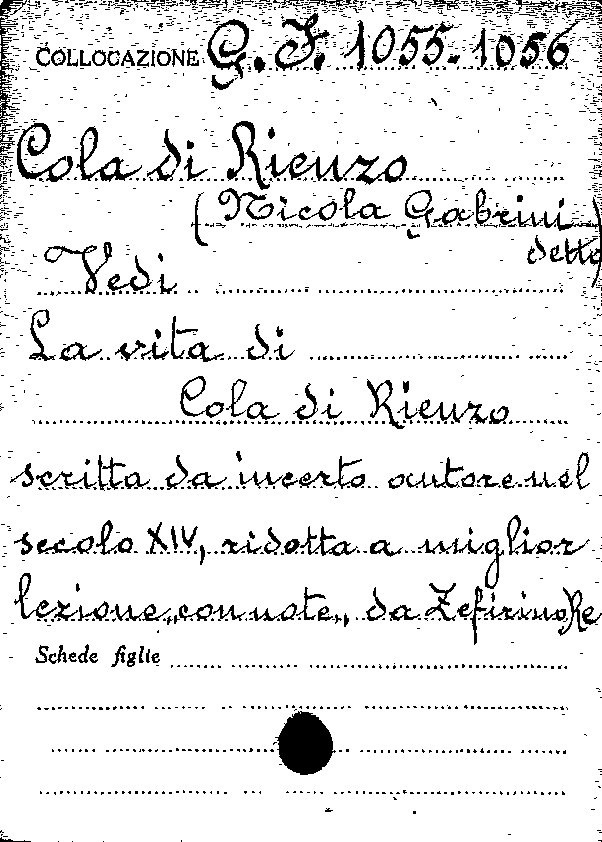 COLLOCAZIONE G. F. 1055-1056
Cola di Rienzo
(Nicola Gabrini
detto)
Vedi
La vita di
Cola di Rienzo
scritta da incerto autore nel
secolo XIV, ridotta a miglior
lezione, con note, da Zefirino Re
Schede figlie